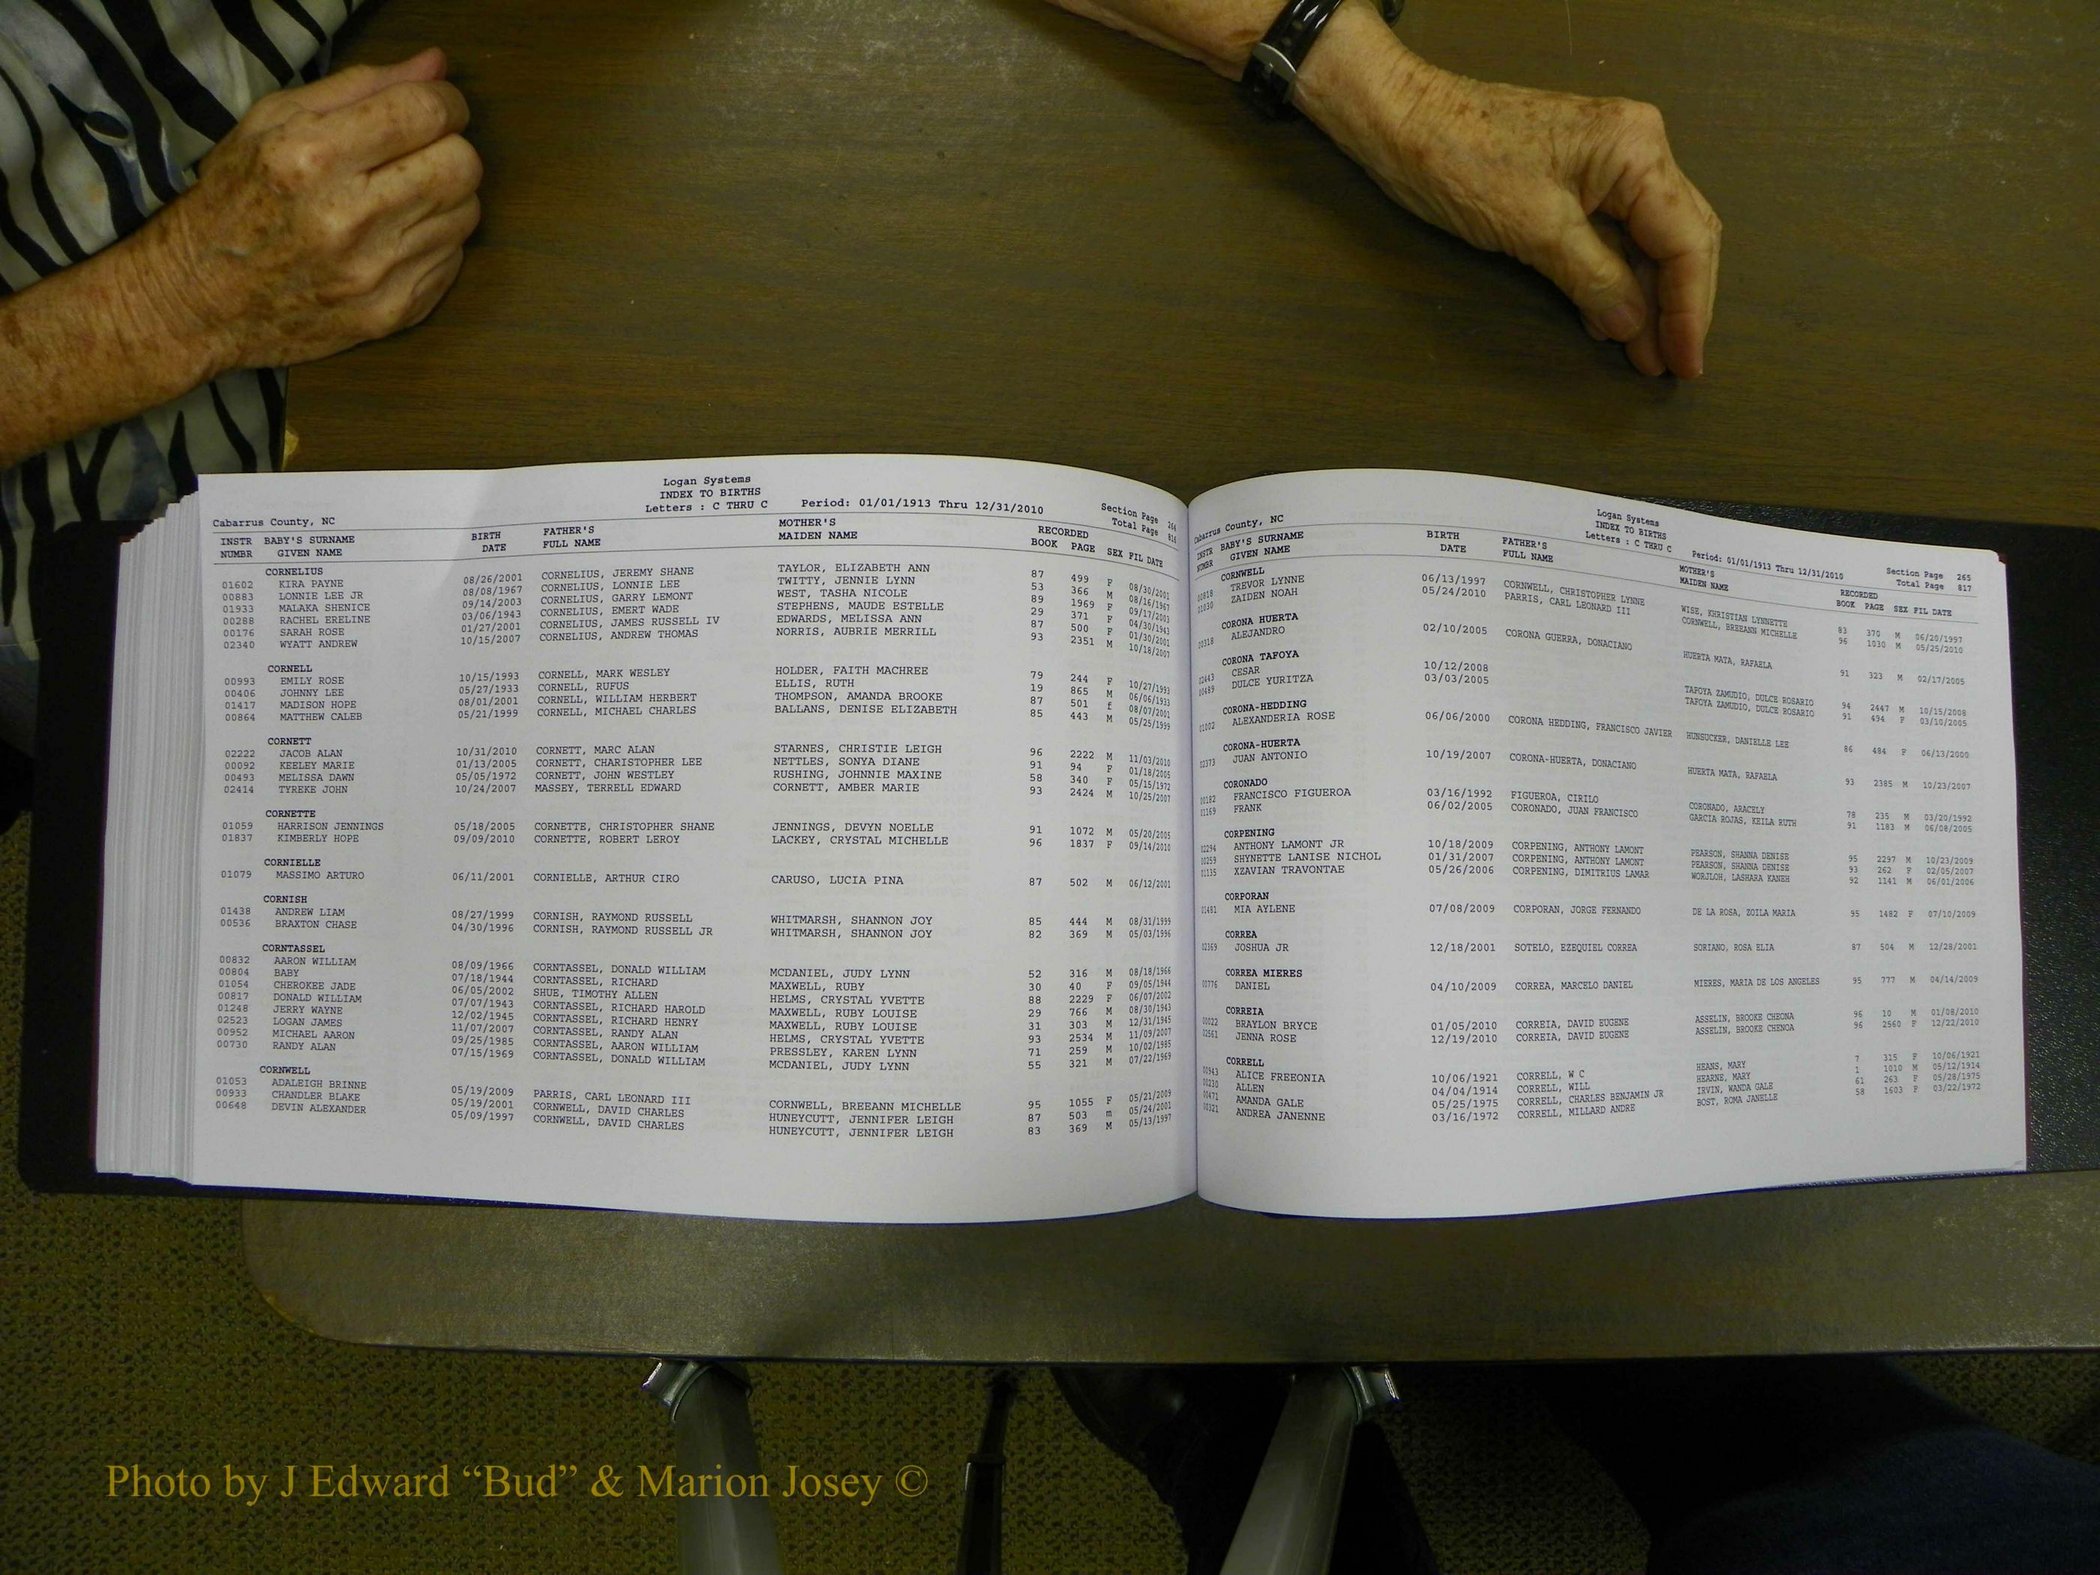 Logan Systems
INDEX TO BIRTHS
Letters : C THRU C Period: 01/01/1913 Thru 12/31/2010 Section Page 264
Cabarrus County, NC Total Page 816
INSTR BABY'S SURNAME BIRTH FATHER'S MOTHER'S RECORDED
NUMBR GIVEN NAME DATE FULL NAME MAIDEN NAME BOOK PAGE SEX FIL DATE
CORNELIUS
01602 KIRA PAYNE 08/26/2001 CORNELIUS, JEREMY SHANE TAYLOR, ELIZABETH ANN 87 499 F 08/30/2001
00883 LONNIE LEE JR 08/08/1967 CORNELIUS, LONNIE LEE TWITTY, JENNIE LYNN 53 366 M 08/16/1967
01933 MALAKA SHENICE 09/14/2003 CORNELIUS, GARRY LEMONT WEST, TASHA NICOLE 89 1969 F 09/17/2003
00288 RACHEL ERELINE 03/06/1943 CORNELIUS, EMERT WADE STEPHENS, MAUDE ESTELLE 29 371 F 04/30/1943
00176 SARAH ROSE 01/27/2001 CORNELIUS, JAMES RUSSELL IV EDWARDS, MELISSA ANN 87 500 F 01/30/2001
02340 WYATT ANDREW 10/15/2007 CORNELIUS, ANDREW THOMAS NORRIS, AUBRIE MERRILL 93 2351 M 10/18/2007
CORNELL
00993 EMILY ROSE 10/15/1993 CORNELL, MARK WESLEY HOLDER, FAITH MACHREE 79 244 F 10/27/1993
00406 JOHNNY LEE 05/27/1933 CORNELL, RUFUS ELLIS, RUTH 19 865 M 06/06/1933
01417 MADISON HOPE 08/01/2001 CORNELL, WILLIAM HERBERT THOMPSON, AMANDA BROOKE 87 501 f 08/07/2001
00864 MATTHEW CALEB 05/21/1999 CORNELL, MICHAEL CHARLES BALLANS, DENISE ELIZABETH 85 443 M 05/25/1999
CORNETT
02222 JACOB ALAN 10/31/2010 CORNETT, MARC ALAN STARNES, CHRISTIE LEIGH 96 2222 M 11/03/2010
00092 KEELEY MARIE 01/13/2005 CORNETT, CHARISTOPHER LEE NETTLES, SONYA DIANE 91 94 F 01/18/2005
00493 MELISSA DAWN 05/05/1972 CORNETT, JOHN WESTLEY RUSHING, JOHNNIE MAXINE 58 340 F 05/15/1972
02414 TYREKE JOHN 10/24/2007 MASSEY, TERRELL EDWARD CORNETT, AMBER MARIE 93 2424 M 10/25/2007
CORNETTE
01059 HARRISON JENNINGS 05/18/2005 CORNETTE, CHRISTOPHER SHANE JENNINGS, DEVYN NOELLE 91 1072 M 05/20/2005
01837 KIMBERLY HOPE 09/09/2010 CORNETTE, ROBERT LEROY LACKEY, CRYSTAL MICHELLE 96 1837 F 09/14/2010
CORNIELLE
01079 MASSIMO ARTURO 06/11/2001 CORNIELLE, ARTHUR CIRO CARUSO, LUCIA PINA 87 502 M 06/12/2001
CORNISH
01438 ANDREW LIAM 08/27/1999 CORNISH, RAYMOND RUSSELL WHITMARSH, SHANNON JOY 85 444 M 08/31/1999
00536 BRAXTON CHASE 04/30/1996 CORNISH, RAYMOND RUSSELL JR WHITMARSH, SHANNON JOY 82 369 M 05/03/1996
CORNTASSEL
00832 AARON WILLIAM 08/09/1966 CORNTASSEL, DONALD WILLIAM MCDANIEL, JUDY LYNN 52 316 M 08/18/1966
00804 BABY 07/18/1944 CORNTASSEL, RICHARD MAXWELL, RUBY 30 40 F 09/05/1944
01054 CHEROKEE JADE 06/05/2002 SHUE, TIMOTHY ALLEN HELMS, CRYSTAL YVETTE 88 2229 F 06/07/2002
00817 DONALD WILLIAM 07/07/1943 CORNTASSEL, RICHARD HAROLD MAXWELL, RUBY LOUISE 29 766 M 08/30/1943
01248 JERRY WAYNE 12/02/1945 CORNTASSEL, RICHARD HENRY MAXWELL, RUBY LOUISE 31 303 M 12/31/1945
02523 LOGAN JAMES 11/07/2007 CORNTASSEL, RANDY ALAN HELMS, CRYSTAL YVETTE 93 2534 M 11/09/2007
00952 MICHAEL AARON 09/25/1985 CORNTASSEL, AARON WILLIAM PRESSLEY, KAREN LYNN 71 259 M 10/02/1985
00730 RANDY ALAN 07/15/1969 CORNTASSEL, DONALD WILLIAM MCDANIEL, JUDY LYNN 55 321 M 07/22/1969
CORNWELL
01053 ADALEIGH BRINNE 05/19/2009 PARRIS, CARL LEONARD III CORNWELL, BREEANN MICHELLE 95 1055 F 05/21/2009
00933 CHANDLER BLAKE 05/19/2001 CORNWELL, DAVID CHARLES HUNEYCUTT, JENNIFER LEIGH 87 503 m 05/24/2001
00648 DEVIN ALEXANDER 05/09/1997 CORNWELL, DAVID CHARLES HUNEYCUTT, JENNIFER LEIGH 83 369 M 05/13/1997
Logan Systems
INDEX TO BIRTHS
Letters : C THRU C Period: 01/01/1913 Thru 12/31/2010 Section Page 265
Cabarrus County, NC Total Page 817
INSTR BABY'S SURNAME BIRTH FATHER'S MOTHER'S RECORDED
NUMBR GIVEN NAME DATE FULL NAME MAIDEN NAME BOOK PAGE SEX FIL DATE
CORNWELL
00818 TREVOR LYNNE 06/13/1997 CORNWELL, CHRISTOPHER LYNNE WISE, KHRISTIAN LYNNETTE 83 370 M 06/20/1997
01030 ZAIDEN NOAH 05/24/2010 PARRIS, CARL LEONARD III CORNWELL, BREEANN MICHELLE 96 1030 M 05/25/2010
CORONA HUERTA
00318 ALEJANDRO 02/10/2005 CORONA GUERRA, DONACIANO HUERTA MATA, RAFAELA 91 323 M 02/17/2005
CORONA TAFOYA
02443 CESAR 10/12/2008 TAFOYA ZAMUDIO, DULCE ROSARIO 94 2447 M 10/15/2008
00489 DULCE YURITZA 03/03/2005 TAFOYA ZAMUDIO, DULCE ROSARIO 91 494 F 03/10/2005
CORONA-HEDDING
01002 ALEXANDERIA ROSE 06/06/2000 CORONA HEDDING, FRANCISCO JAVIER HUNSUCKER, DANIELLE LEE 86 484 F 06/13/2000
CORONA-HUERTA
02373 JUAN ANTONIO 10/19/2007 CORONA-HUERTA, DONACIANO HUERTA MATA, RAFAELA 93 2385 M 10/23/2007
CORONADO
00182 FRANCISCO FIGUEROA 03/16/1992 FIGUEROA, CIRILO CORONADO, ARACELY 78 235 M 03/20/1992
01169 FRANK 06/02/2005 CORONADO, JUAN FRANCISCO GARCIA ROJAS, KEILA RUTH 91 1183 M 06/08/2005
CORPENING
02294 ANTHONY LAMONT JR 10/18/2009 CORPENING, ANTHONY LAMONT PEARSON, SHANNA DENISE 95 2297 M 10/23/2009
00259 SHYNETTE LANISE NICHOL 01/31/2007 CORPENING, ANTHONY LAMONT PEARSON, SHANNA DENISE 93 262 F 02/05/2007
01135 XZAVIAN TRAVONTAE 05/26/2006 CORPENING, DIMITRIUS LAMAR WORJLOH, LASHARA KANEH 92 1141 M 06/01/2006
CORPORAN
01481 MIA AYLENE 07/08/2009 CORPORAN, JORGE FERNANDO DE LA ROSA, ZOILA MARIA 95 1482 F 07/10/2009
CORREA
02369 JOSHUA JR 12/18/2001 SOTELO, EZEQUIEL CORREA SORIANO, ROSA ELIA 87 504 M 12/28/2001
CORREA MIERES
00776 DANIEL 04/10/2009 CORREA, MARCELO DANIEL MIERES, MARIA DE LOS ANGELES 95 777 M 04/14/2009
CORREIA
00022 BRAYLON BRYCE 01/05/2010 CORREIA, DAVID EUGENE ASSELIN, BROOKE CHEONA 96 10 M 01/08/2010
02561 JENNA ROSE 12/19/2010 CORREIA, DAVID EUGENE ASSELIN, BROOKE CHENOA 96 2560 F 12/22/2010
CORRELL
00943 ALICE FREEONIA 10/06/1921 CORRELL, W C HEANS, MARY 7 315 F 10/06/1921
00230 ALLEN 04/04/1914 CORRELL, WILL HEARNE, MARY 1 1010 M 05/12/1914
00471 AMANDA GALE 05/25/1975 CORRELL, CHARLES BENJAMIN JR IRVIN, WANDA GALE 61 263 F 05/28/1975
00321 ANDREA JANENNE 03/16/1972 CORRELL, MILLARD ANDRE BOST, ROMA JANELLE 58 1603 F 03/22/1972
Photo by J Edward “Bud” & Marion Josey ©